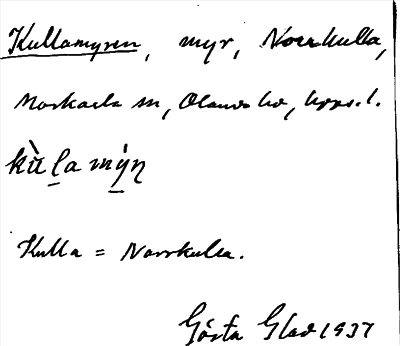 Kullamyren, myr, Norrkulla,
Morkarla sn, Olands hd, Upps. l.
kùl̠a mýn̠
Kulla = Norrkulla.
Gösta Glad 1937